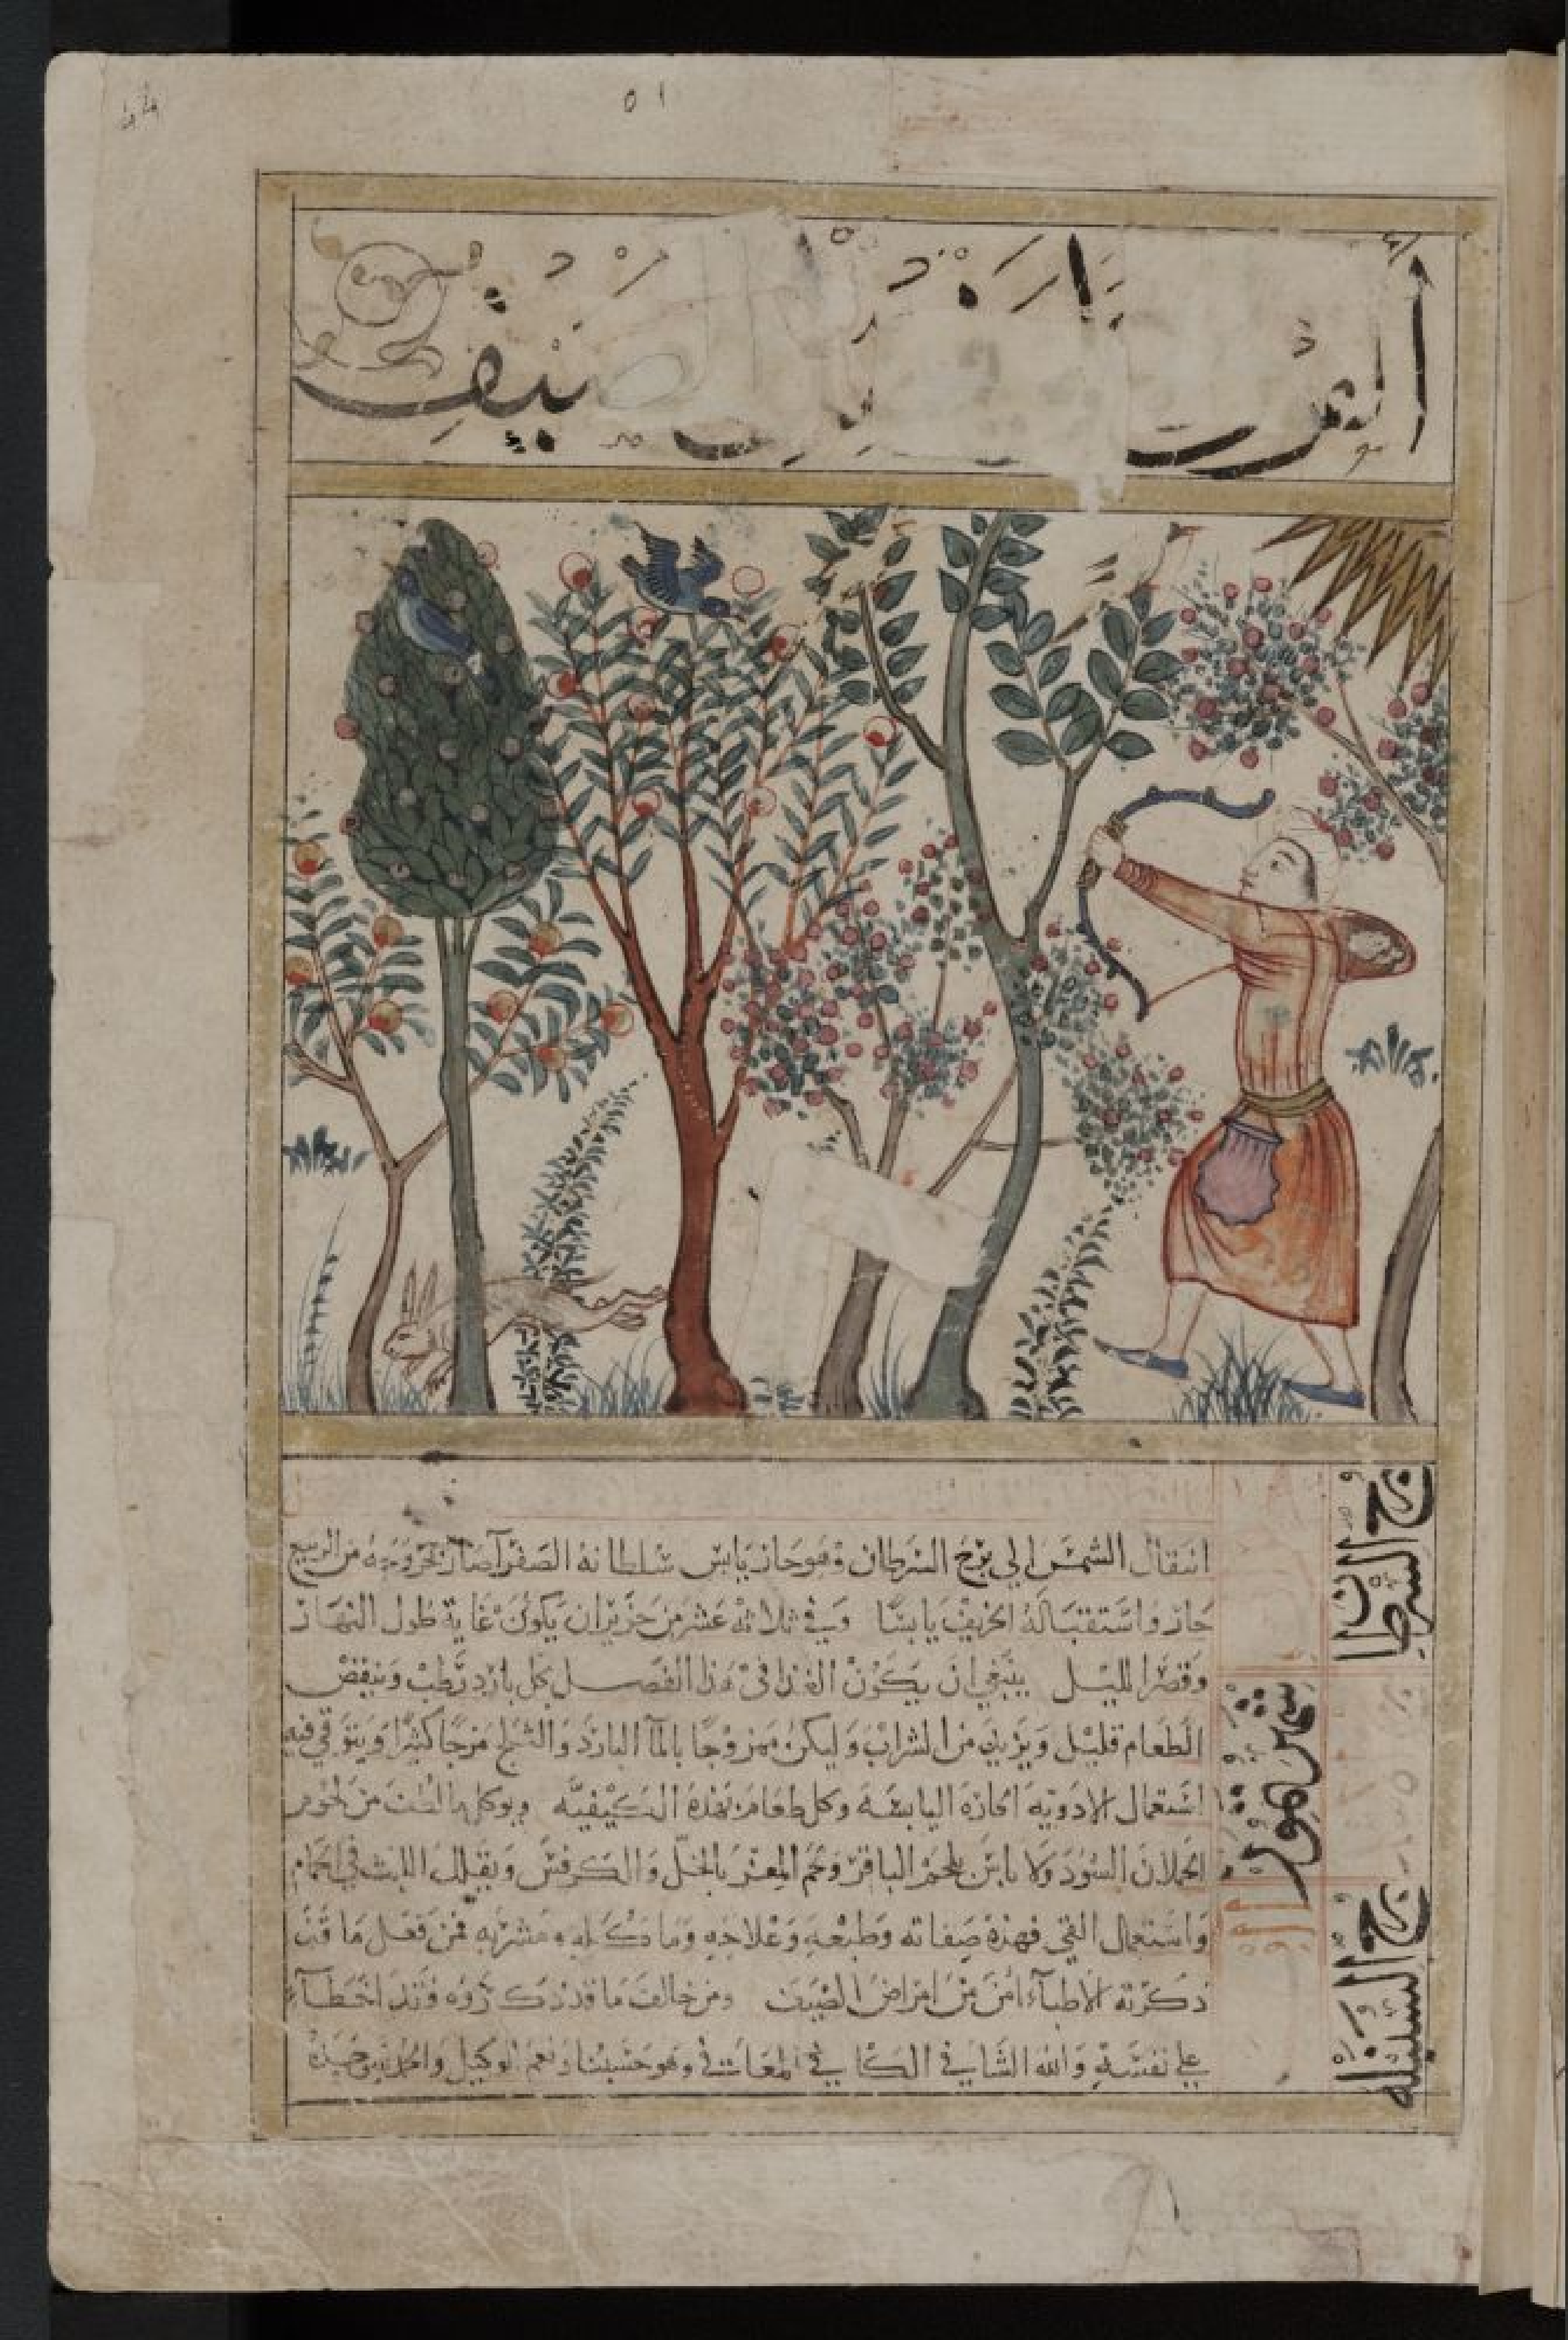 ٥١
الصيف
انتقال الشمس الي برج السرطان وهو حار يابس سلطانه الصفرآ صار لخروجه من الربيع
حار واستقباله الخريف يابسا وفي ثلاثة عشر من حزيران يكون غاية طول النهار
وقصر الليل ينبغي ان يكون الغذا في هذا الفصل بكل بارد رطب وينقص
الطعام قليل ويزيد من الشراب وليكن ممزوجا بالمآ البارد والثلج مزجا كثيرا ويتوقي فيه
استعمال الادويه الحاره اليابسه وكل طعام بهذه الكيفيه ويوكل من لحوم
الحملان السود ولا باس بلحم الباقر ولحم المعز بالخل والكرفس ويقلل اللبث في الحمام
واستعمال القي فهذه صفاته وطبعه وعلاجه وماكله ومشربه فمن فعل ما قد
ذكرته الاطبآء امن من امراض الصيف ومن خالف ما قد ذكروه فقد اخطآء
علي نفسه والله الشافي الكافي المعافي وهو حسبنا ونعم الوكيل والحمد لله وحده
برج السرطان
شهور
برج السنبله